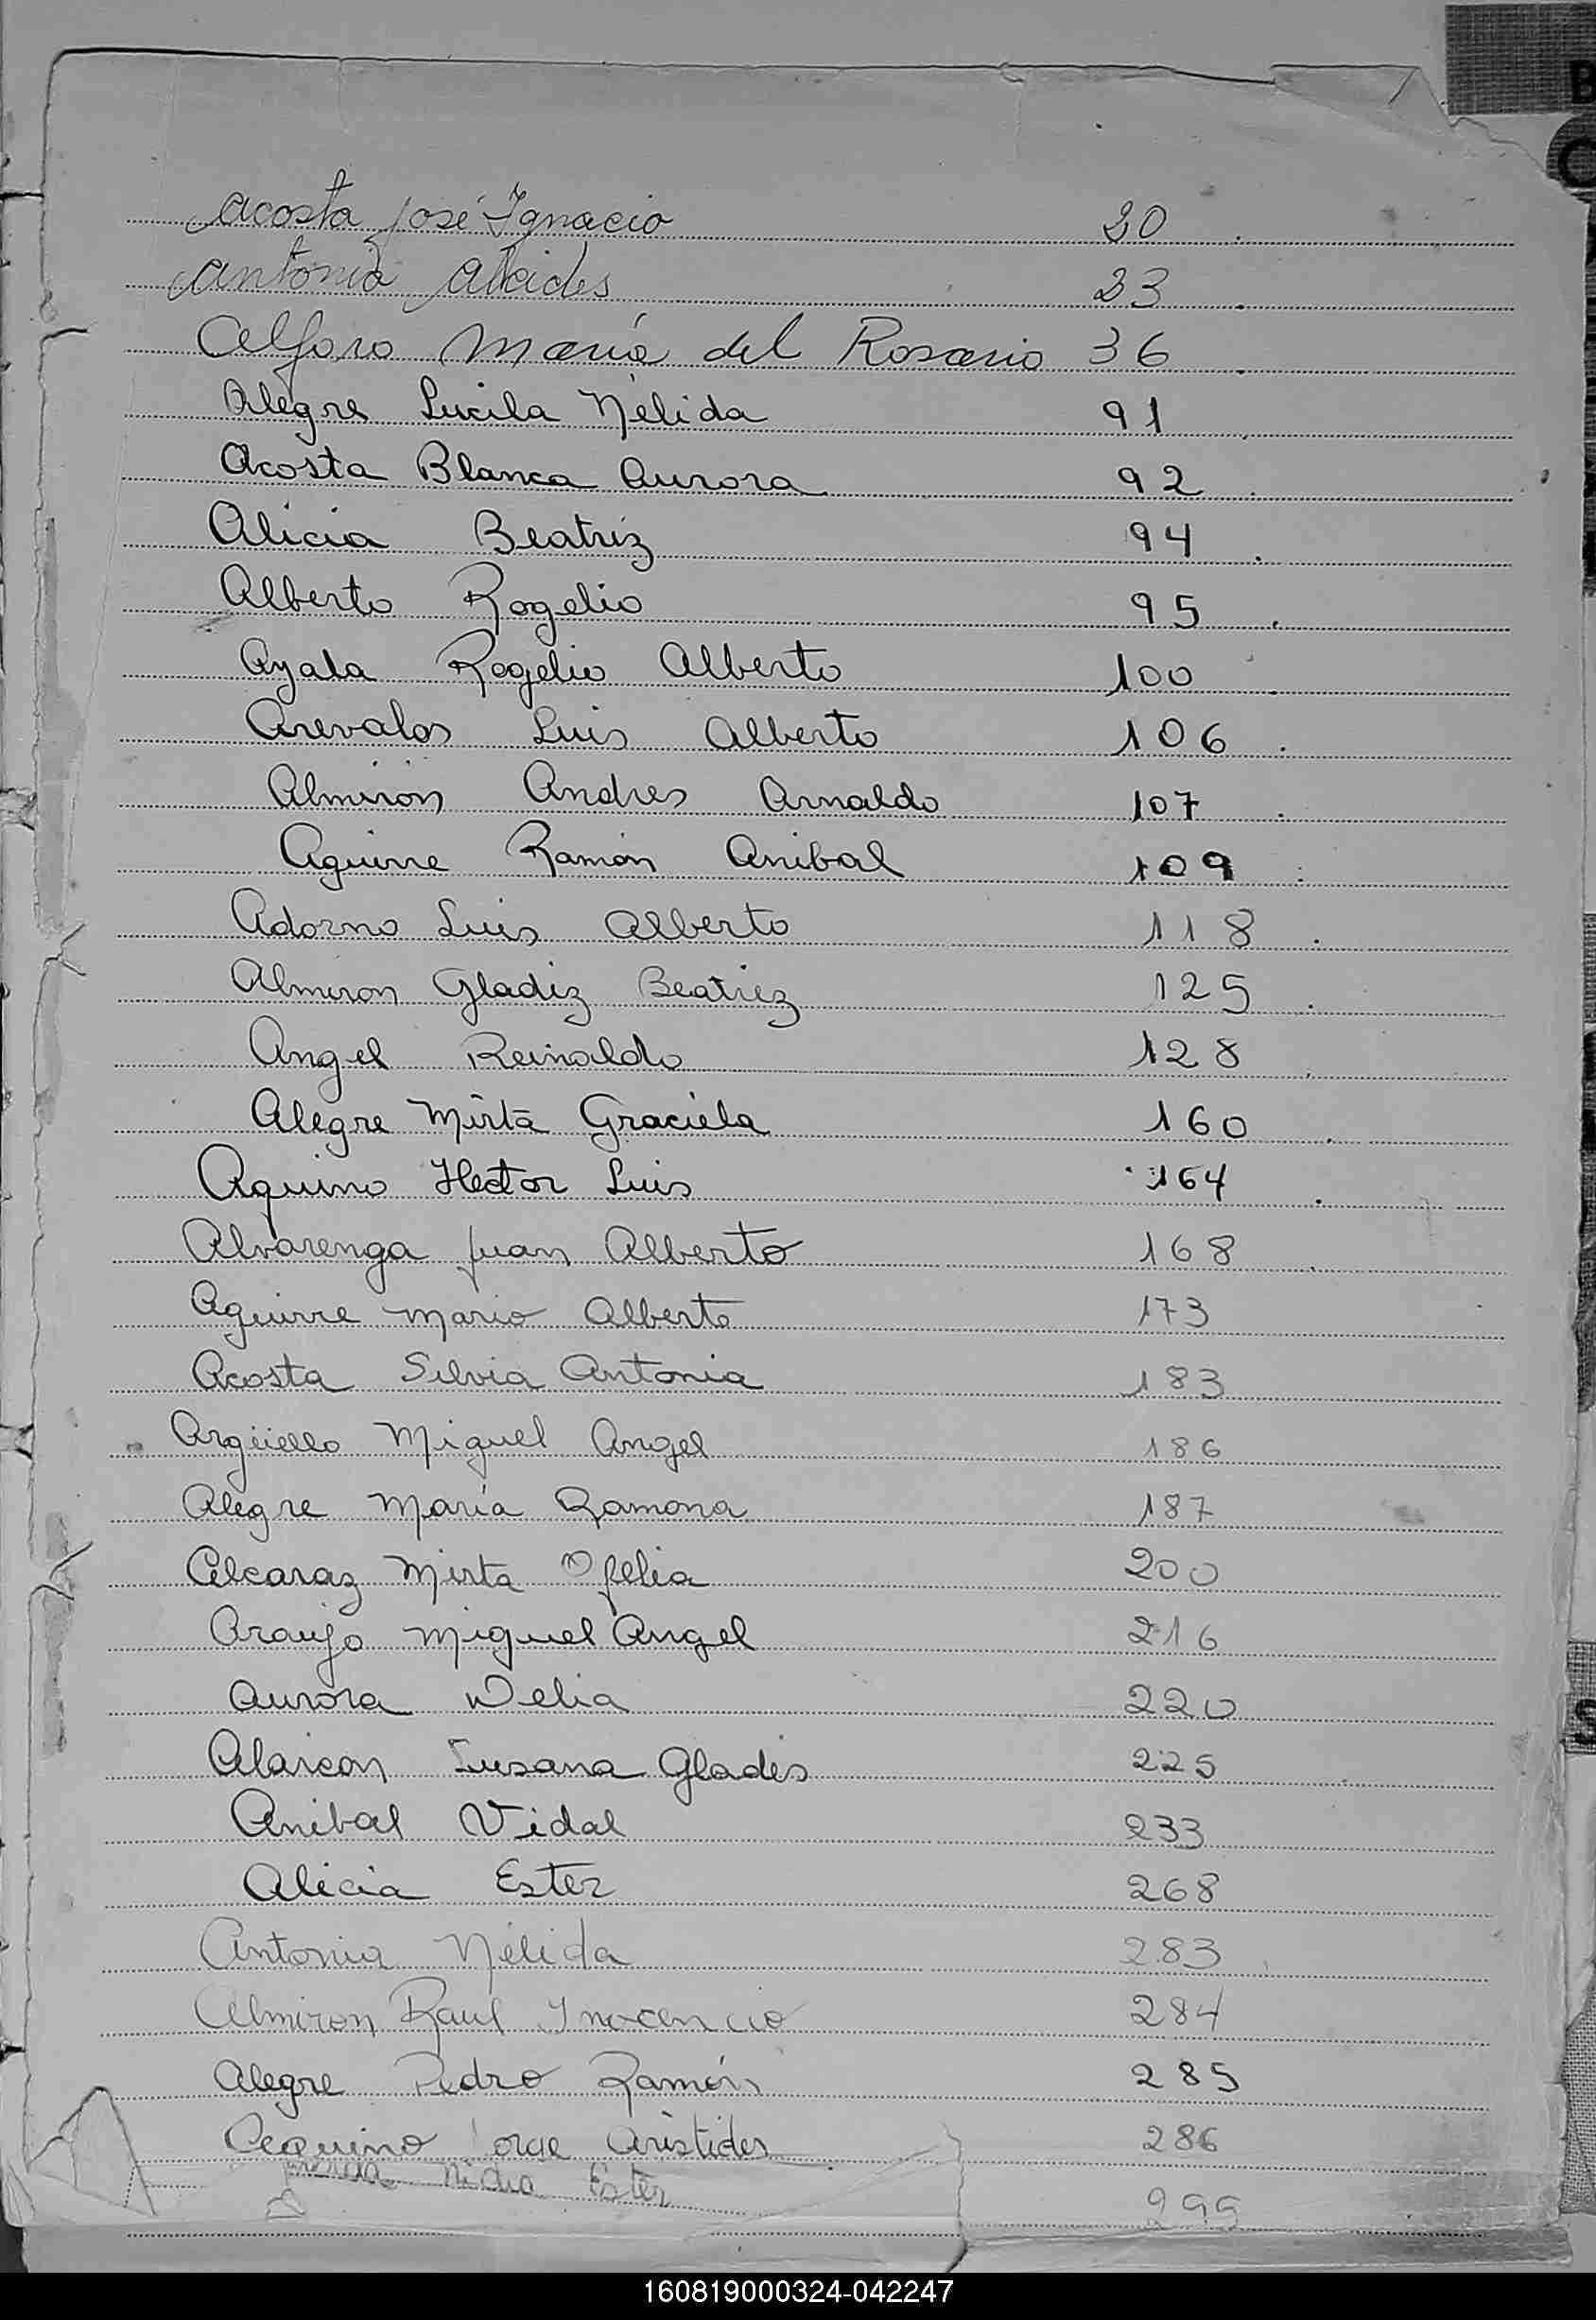 Acosta José Ignacio 20
Antonio Alcides 23
Alforo María del Rosario 36
Alegre Lucila Nélida 91
Acosta Blanca Aurora 92
Alicia Beatriz 94
Alberto Rogelio 95
Ayala Rogelio Alberto 100
Arevalos Luis Alberto 106
Almirón Andres Arnaldo 107
Aguirre Ramón Anibal 109
Adorno Luis Alberto 118
Almiron Gladiz Beatriz 125
Angel Reinaldo 128
Alegre Mirta Graciela 160
Aquino Hector Luis 164
Alvarenga Juan Alberto 168
Aguirre Mario Alberto 173
Acosta Silvia Antonia 183
Argüello Miguel Angel 186
Alegre María Ramona 187
Alcaraz Mirta Ofelia 200
Araujo Miguel Angel 216
Aurora Delia 220
Alarcon Susana Glades 225
Anibal Vidal 233
Alicia Ester 268
Antonia Nélida 283
Almiron Raul Inocencio 284
Alegre Pedro Ramón 285
Aequino Jorge Aristides 286
Nidia Ester
160819000324-042247